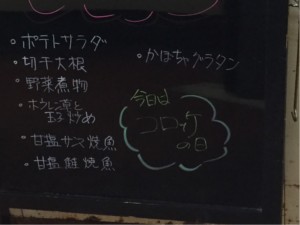 ・ポテトサラダ
・切干大根
・野菜煮物
・ホウレン草と
玉子炒め
・甘塩サンマ焼魚
・甘塩鮭焼魚
・かぼちゃグラタン
今日は
コロッケ
の日